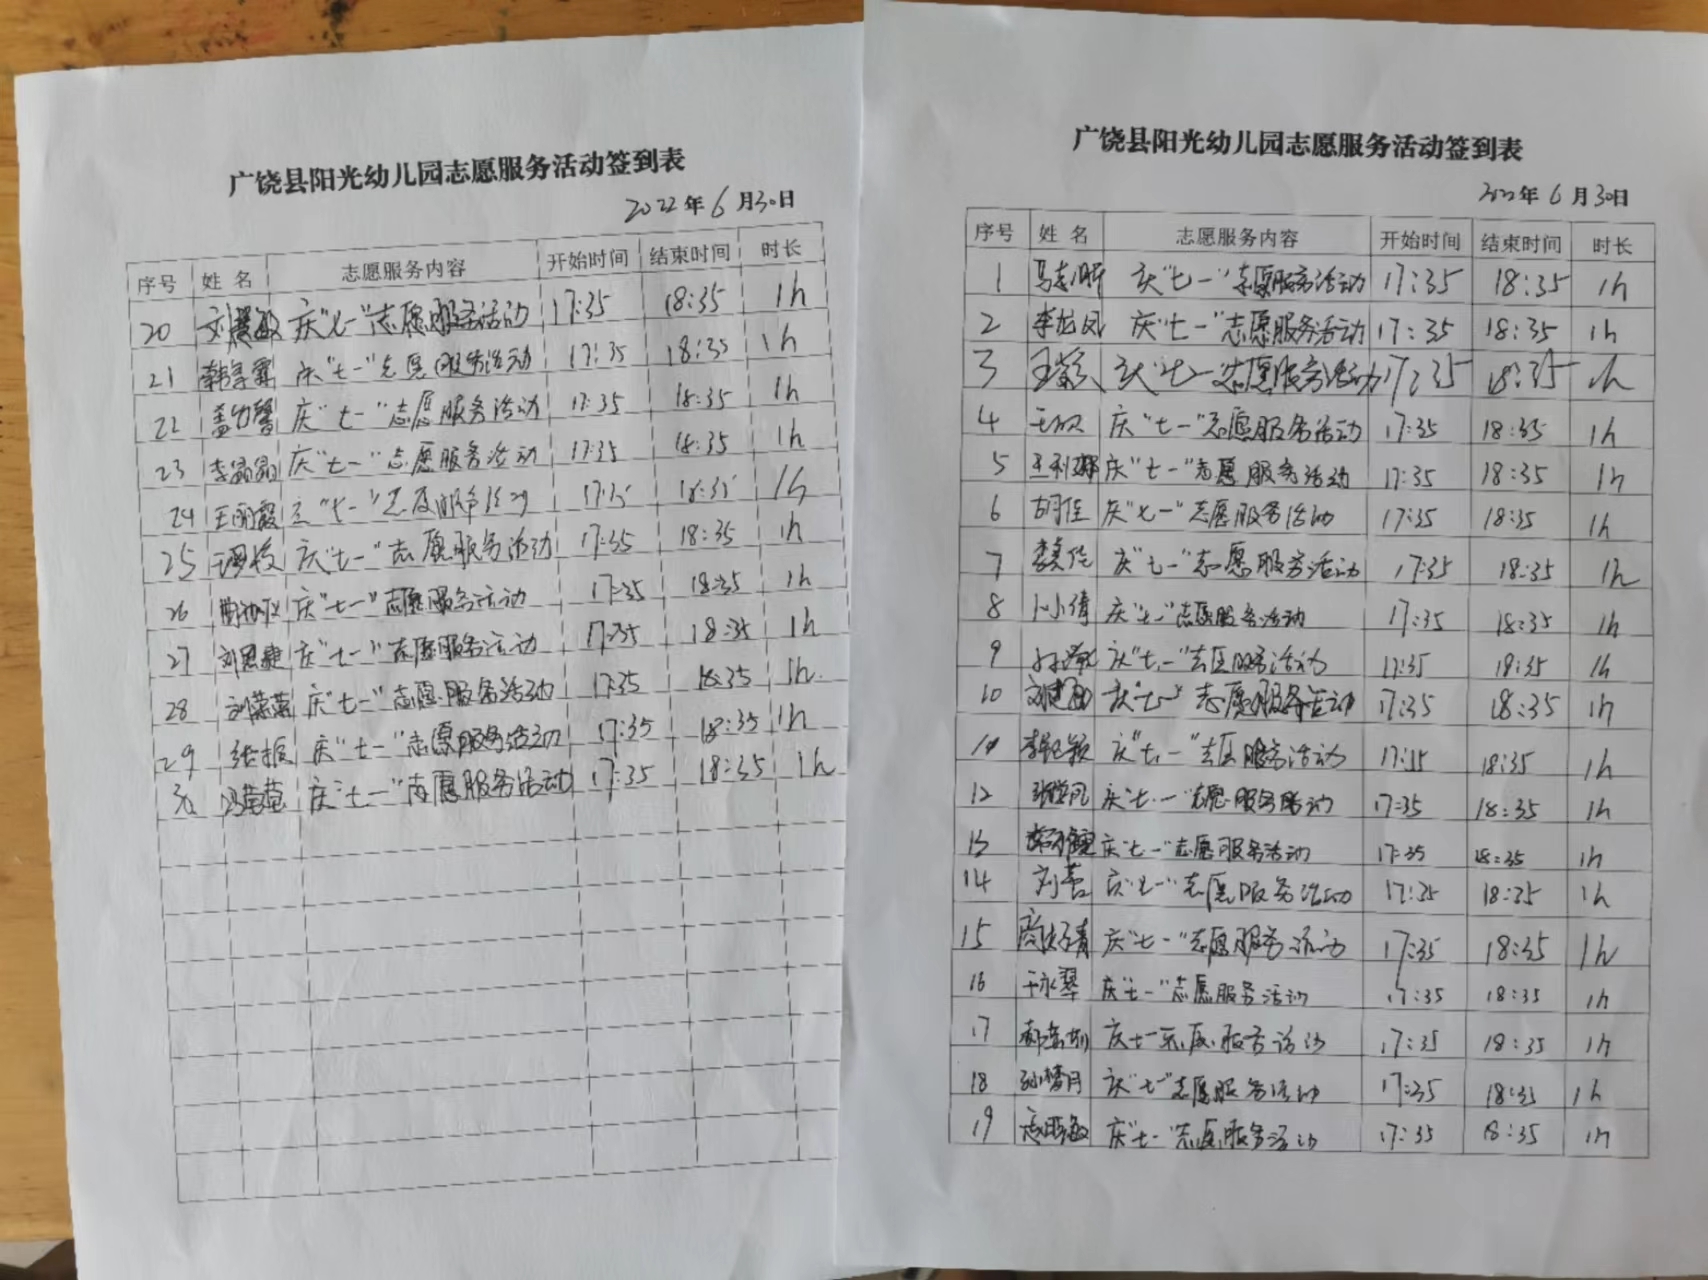 广饶县阳光幼儿园志愿服务活动签到表
2022年6月30日
序号 姓名 志愿服务内容 开始时间 结束时间 时长
20 刘慧敏 庆"七一"志愿服务活动 17:35 18:35 1h
21 庆"七一"志愿服务活动 17:35 18:35 1h
22 庆"七一"志愿服务活动 17:35 18:35 1h
23 李晶晶 庆"七一"志愿服务活动 17:35 18:35 1h
24 王丽霞 庆"七一"志愿服务活动 17:35 18:35 1h
25 庆"七一"志愿服务活动 17:35 18:35 1h
26 庆"七一"志愿服务活动 17:35 18:35 1h
27 刘思婕 庆"七一"志愿服务活动 17:35 18:35 1h
28 刘荣荣 庆"七一"志愿服务活动 17:35 18:35 1h
29 张振 庆"七一"志愿服务活动 17:35 18:35 1h
30 冯苗苗 庆"七一"志愿服务活动 17:35 18:35 1h
广饶县阳光幼儿园志愿服务活动签到表
2022年6月30日
序号 姓名 志愿服务内容 开始时间 结束时间 时长
1 庆"七一"志愿服务活动 17:35 18:35 1h
2 李龙凤 庆"七一"志愿服务活动 17:35 18:35 1h
3 庆"七一"志愿服务活动 17:35 18:35 1h
4 庆"七一"志愿服务活动 17:35 18:35 1h
5 王利娜 庆"七一"志愿服务活动 17:35 18:35 1h
6 胡佳 庆"七一"志愿服务活动 17:35 18:35 1h
7 庆"七一"志愿服务活动 17:35 18:35 1h
8 卜小倩 庆"七一"志愿服务活动 17:35 18:35 1h
9 庆"七一"志愿服务活动 17:35 18:35 1h
10 刘建丽 庆"七一"志愿服务活动 17:35 18:35 1h
11 庆"七一"志愿服务活动 17:35 18:35 1h
12 庆"七一"志愿服务活动 17:35 18:35 1h
13 庆"七一"志愿服务活动 17:35 18:35 1h
14 庆"七一"志愿服务活动 17:35 18:35 1h
15 庆"七一"志愿服务活动 17:35 18:35 1h
16 于永翠 庆"七一"志愿服务活动 17:35 18:35 1h
17 庆七一志愿服务活动 17:35 18:35 1h
18 孙梦月 庆"七一"志愿服务活动 17:35 18:35 1h
19 庆"七一"志愿服务活动 17:35 18:35 1h